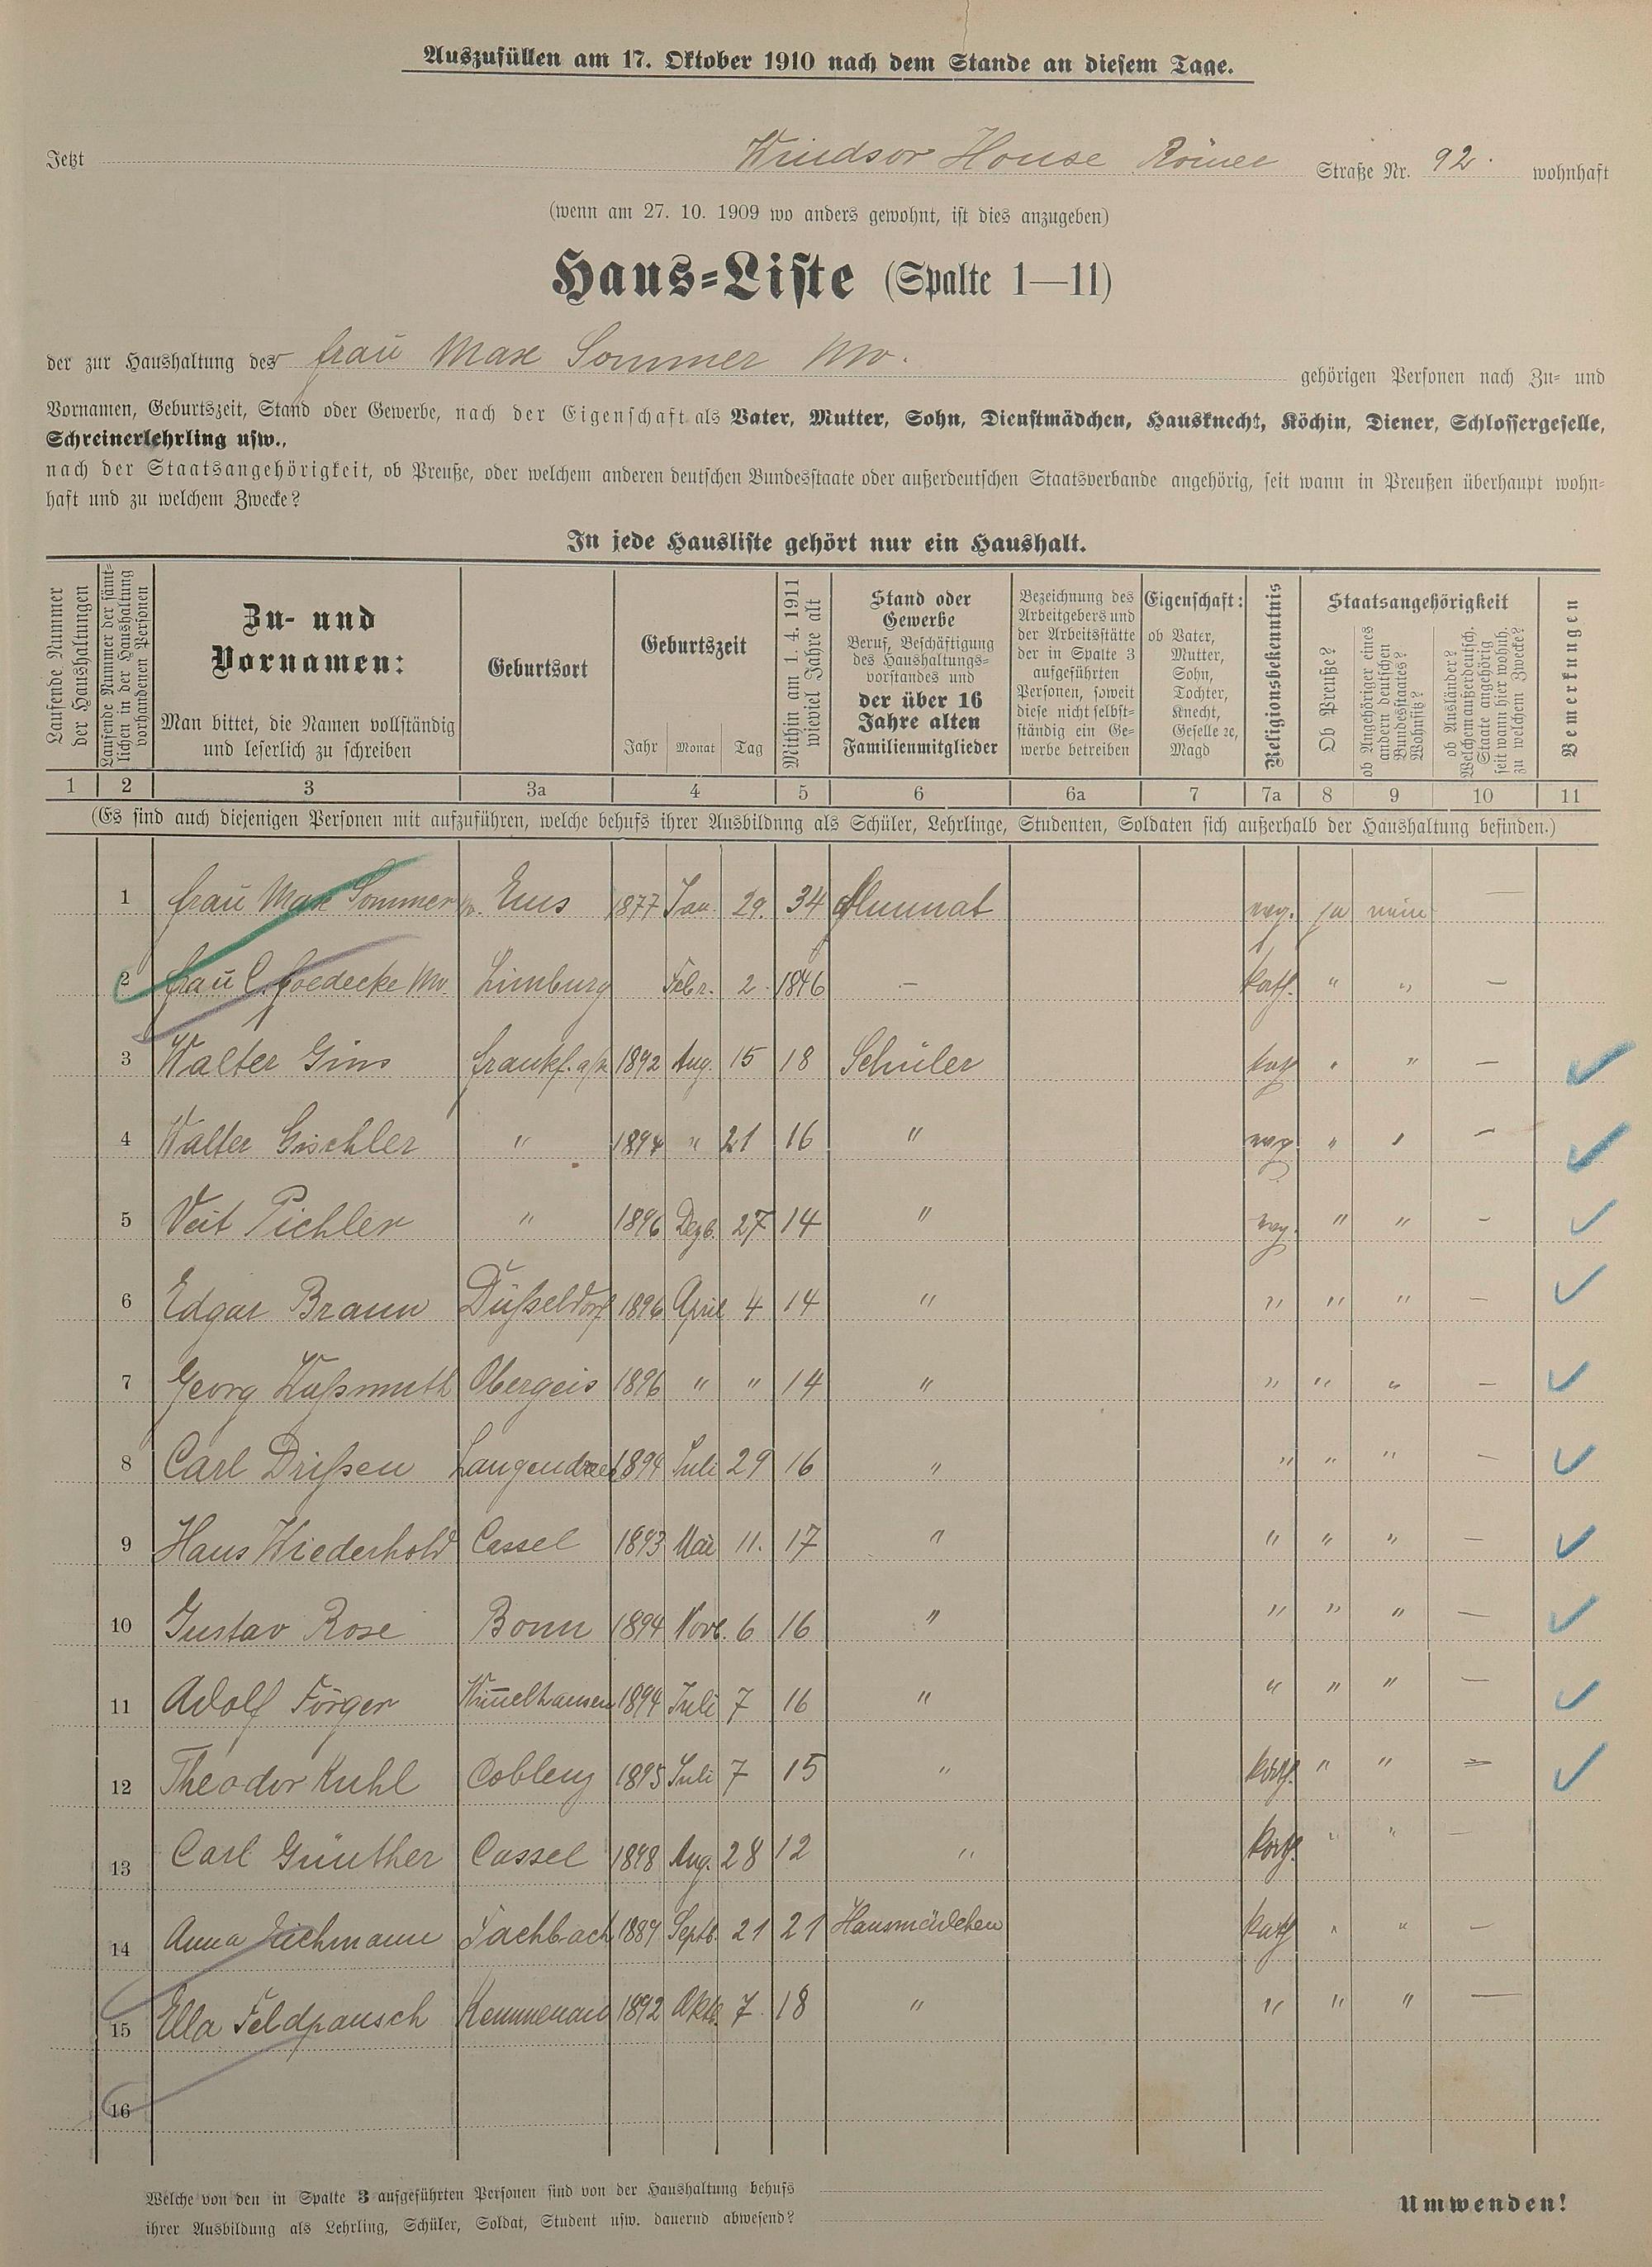 Auszufüllen am 17. Oktober 1910 nach dem Stande an diesem Tage.
Jetzt Windsor House Römer Straße Nr. 92. wohnhaft
(wenn am 27. 10. 1909 wo anders gewohnt, ist dies anzugeben)
Haus=Liste (Spalte 1—11)
der zur Haushaltung des frau Max Sommer Ww. gehörigen Personen nach Zu= und
Vornamen, Geburtszeit, Stand oder Gewerbe, nach der Eigenschaft als Vater, Mutter, Sohn, Dienstmädchen, Hausknecht, Köchin, Diener, Schlossergeselle,
Schreinerlehrling usw.,
nach der Staatsangehörigkeit, ob Preuße, oder welchem anderen deutschen Bundesstaate oder außerdeutschen Staatsverbande angehörig, seit wann in Preußen überhaupt wohn=
haft und zu welchem Zwecke?
In jede Hausliste gehört nur ein Haushalt.
Laufende Nummer
der Haushaltungen
Laufende Nummer der sämt=
lichen in der Haushaltung
vorhandenen Personen
Zu- und
Vornamen:
Man bittet, die Namen vollständig
und leserlich zu schreiben
Geburtsort
Geburtszeit
Jahr Monat Tag
Mithin am 1. 4. 1911
wieviel Jahre alt
Stand oder
Gewerbe
Beruf, Beschäftigung
des Haushaltungs=
vorstandes und
der über 16
Jahre alten
Familienmitglieder
Bezeichnung des
Arbeitgebers und
der Arbeitsstätte
der in Spalte 3
aufgeführten
Personen, soweit
diese nicht selbst=
ständig ein Ge=
werbe betreiben
Eigenschaft:
ob Vater,
Mutter,
Sohn,
Tochter,
Knecht,
Geselle ꝛc,
Magd
Religionsbekenntnis
Staatsangehörigkeit
Ob Preuße?
ob Angehöriger eines
andern deutschen
Bundesstaates?
Wohnsitz?
ob Ausländer?
Welchem außerdeutsch.
Staate angehörig
seit wann hier wohnh.
zu welchem Zwecke?
Bemerkungen
1 2 3 3a 4 5 6 6a 7 7a 8 9 10 11
(Es sind auch diejenigen Personen mit aufzuführen, welche behufs ihrer Ausbildnng als Schüler, Lehrlinge, Studenten, Soldaten sich außerhalb der Haushaltung befinden.)
1 frau Max Sommer Ww. Ems 1877 Jan. 29. 34 Alumnat evg. ja nein —
2 frau C. Goedecke Ww. Limburg Febr. 2. 1846 — kath. " " —
3 Walter Gins frankf. a/M 1892 Aug. 15 18 Schüler kath " " —
4 Walter Gischler " 1894 " 21 16 " evg. " " —
5 Veit Pichler " 1896 Dezb. 27 14 " evg. " " —
6 Edgar Braun Düßeldorf 1896 April 4 14 " " " " —
7 Georg Wußmuth Obergeis 1896 " " 14 " " " " —
8 Carl Drißen 1894 Juli 29 16 " " " " —
9 Hans Wiederhold Cassel 1893 Mai 11. 17 " " " " —
10 Gustav Rose Bonn 1894 Novb. 6 16 " " " " —
11 Adolf Förger 1894 Juli 7 16 " " " " —
12 Theodor Kuhl Coblenz 1895 Juli 7 15 " kath. " " —
13 Carl Günther Cassel 1898 Aug. 28 12 " kath. " " —
14 Anna Eichmann Fachbach 1889 Septb. 21 21 Hausmädchen kath " " —
15 Ella Feldpausch Kemmenau 1892 Oktb. 7. 18 " " " " —
16
Welche von den in Spalte 3 aufgeführten Personen sind von der Haushaltung behufs
ihrer Ausbildung als Lehrling, Schüler, Soldat, Student usw. dauernd abwesend?
Umwenden!